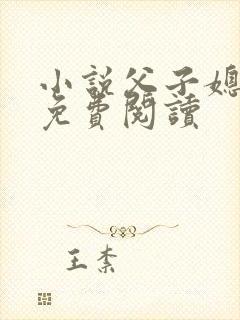 小説父子媳
免費閱讀
王柰